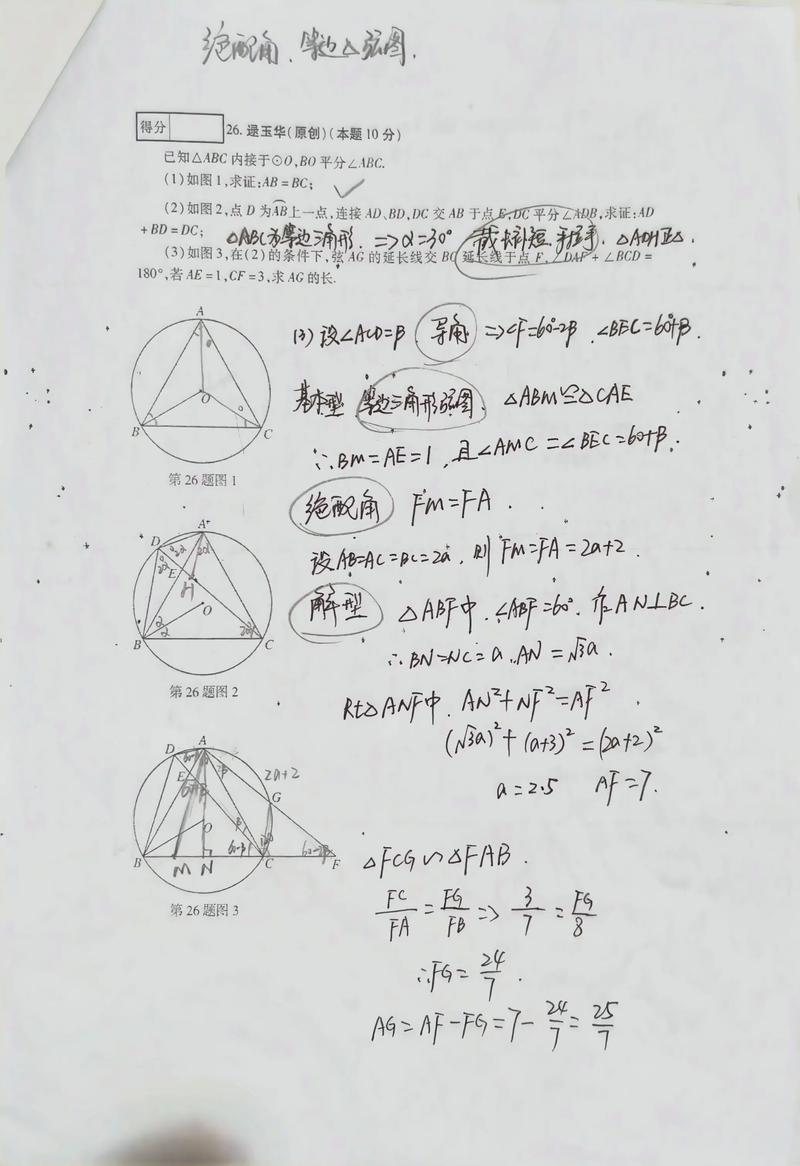 绝配角、等边△弦图.
得分 26. 逯玉华(原创)(本题10分)
已知△ABC 内接于⊙O,BO 平分∠ABC.
(1)如图1,求证:AB=BC;
(2)如图2,点 D 为AB上一点,连接 AD、BD,DC 交 AB 于点 E,DC 平分∠ADB,求证:AD
+BD=DC;
△ABC为等边三角形. =>α=30° 截长补短. 手拉手. △ADH正△.
(3)如图3,在(2)的条件下,弦 AG 的延长线交 BC 延长线于点 F, ∠DAF+∠BCD=
180°,若 AE=1,CF=3,求 AG 的长.
(3) 设∠ACD=β. 导角 => ∠F=60°-2β. ∠BEC=60°+β.
基本型 等边三角形弦图. △ABM≌△CAE
∴BM=AE=1, 且∠AMC=∠BEC=60+β.
绝配角 FM=FA.
设AB=AC=BC=2a, 则FM=FA=2a+2.
解型 △ABF中. ∠ABF=60°. 作AN⊥BC.
∴BN=NC=a. AN=√3a.
Rt△ANF中. AN²+NF²=AF².
(√3a)²+(a+3)²=(2a+2)²
a=2.5 AF=7.
△FCG∽△FAB.
FC/FA=FG/FB => 3/7=FG/8
∴FG=24/7.
AG=AF-FG=7-24/7=25/7
A
O
B
C
第26题图1
D
A
2α
2α
E
H
O
B
C
2α
第26题图2
D
A
E
2a+2
G
β
O
B
M
N
C
F
60-2β
第26题图3